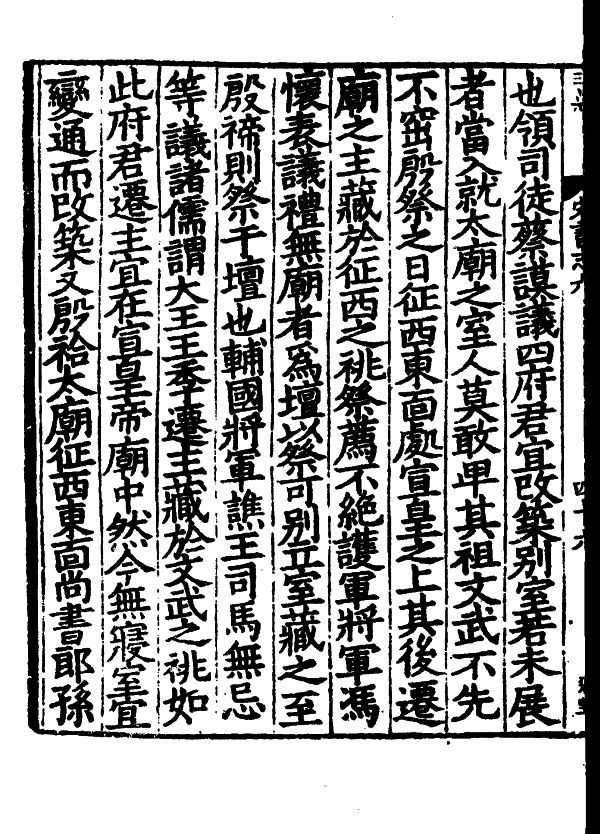 也領司徒蔡謀議四府君宜改築別室若未展
者當入就太廟之室人莫敢卑其祖文武不先
不窋殷祭之日征西東面處宣皇之上其後遷
廟之主藏於征西之祧祭薦不絶護軍將軍馮
懷表議禮無廟者爲壇以祭可別立室藏之至
殷禘則祭于壇也輔國將軍譙王司馬無忌
等議諸儒謂大王王季遷主藏於文武之祧如
此府君遷主宜在宣皇帝廟中然今無寢室宜
變通而改築又殷祫太廟征西東面尚書郎孫
宋書志九